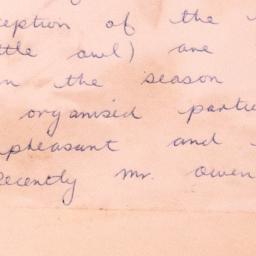 ception of the
ttle owl) are
n the season
organised partie
pheasant and
Recently Mr. Owen